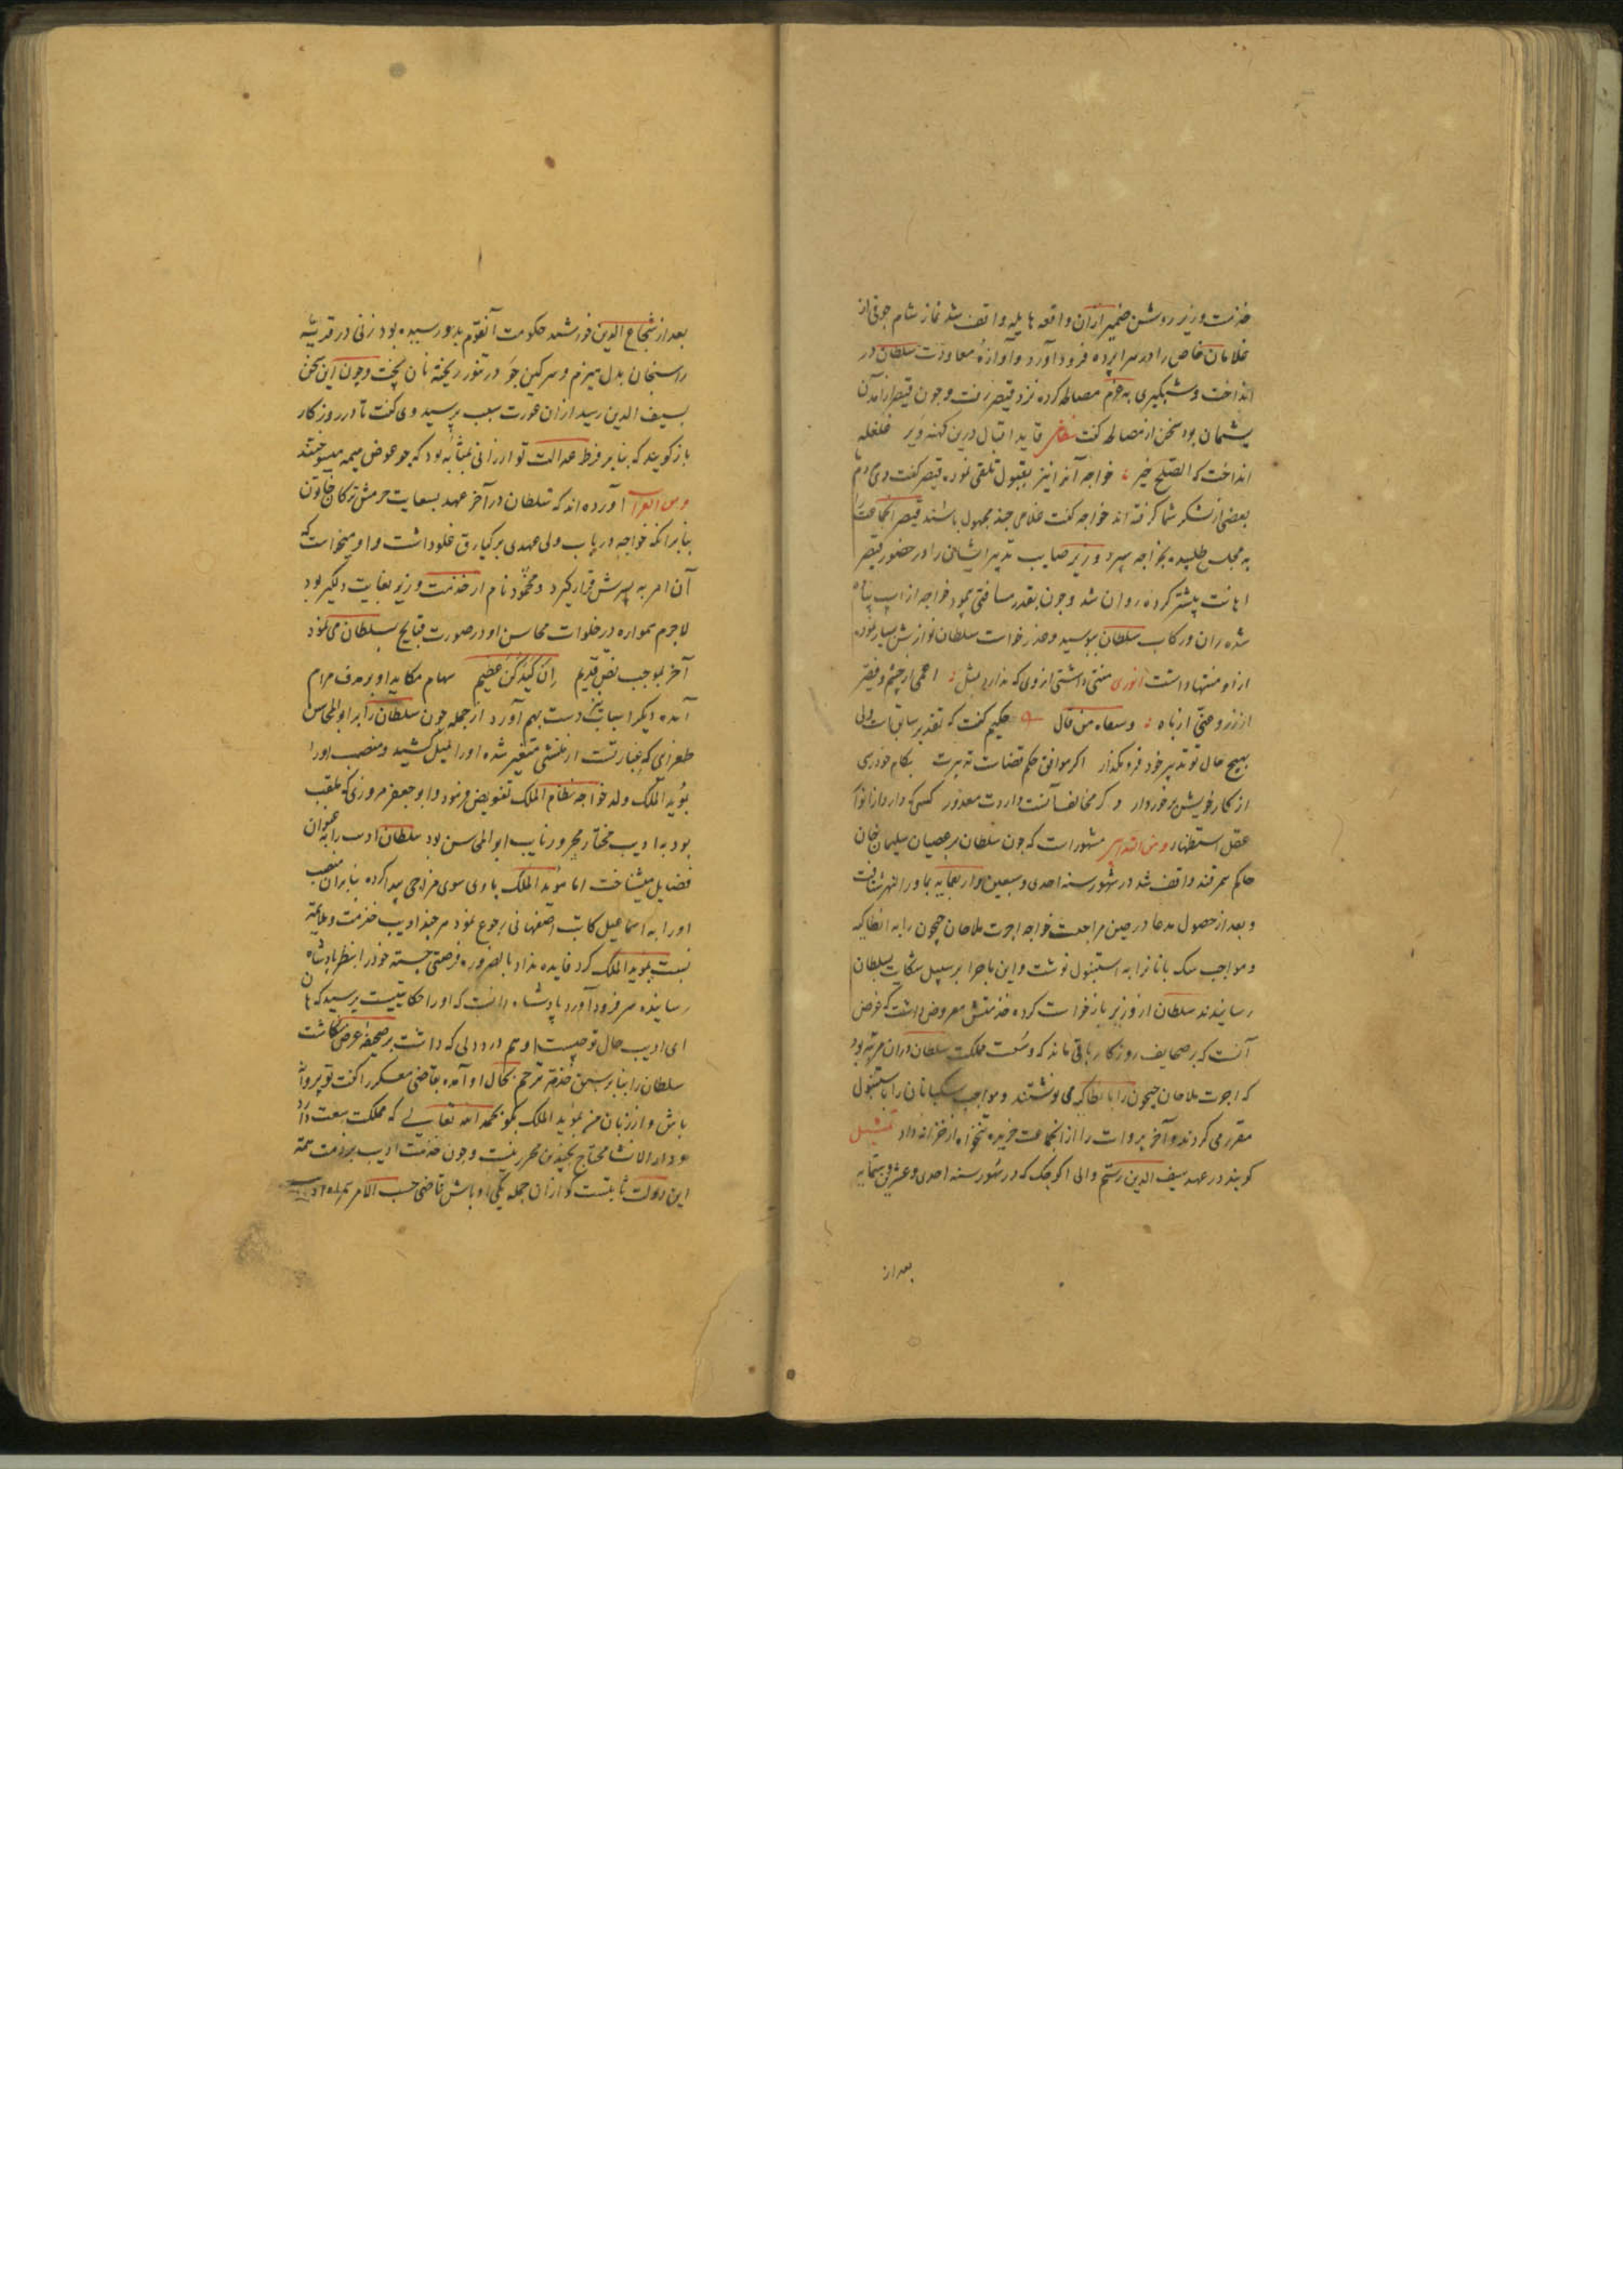 خدمت وزیر روشن ضمیر ازان واقعه هایله واقف شد نماز شام جوقی از
غلامان خاص را در سراپرده فرود آورد و آوازهٔ معاودت سلطان در
انداخت و شبگیری به عزم مصالحه کرده نزد قیصر رفت و چون قیصر از آمدن
پشیمان بود سخن از مصالحه گفت قاید اقبال درین کهنه دیر غلغله
انداخت که الصلح خیر خواجه آنرا نیز بقبول تلقی نمود قیصر گفت دی مردم
بعضی از لشکر شما گرفته اند خواجه گفت غلامی چند مجهول باشند قیصر آنجماعت
به مجلس طلبیده بخواجه سپرد وزیر صایب تدبیر ایشان را در حضور قیصر
اهانت پیشتر کرده روان شد و چون بقدر مسافتی پیمود خواجه از اسب پیاده
شده ران و رکاب سلطان ببوسید و عذر خواست سلطان نوازش بسیار نموده
ازو منتها داشت انوری منتی داشتی از وی که ندارد بمثل اعمی از چشم و فقیر
از زر و از باه و سقاه من قال حکیم گفت که تقدیر سابقست ولی
بهیچ حال تو تدبیر خود فرو مگذار اگر موافق حکم قضاست تدبیرت بکام خود رسی
از کار خویش برخوردار و گر مخالف آنست داردت معذور کسی که دارد از انواع
عقل استظهار و من التدابیر مشهور است که چون سلطان بر عصیان سلیمان خان
حاکم سمرقند واقف شد در شهور سنه احدی و سبعین و اربعمایه بماوراءالنهر شتافت
و بعد از حصول مدعا در حین مراجعت خواجه اجرت ملاحان جیحون را به انطاکیه
و مواجب سک بانانرا به استنبول نوشت و این ماجرا بر سبیل شکایت بسلطان
رسانیدند سلطان از وزیر بازخواست کرده خدمتش معروض داشت که غرض
آنست که بر صحایف روزگار باقی ماند که وسعت مملکت سلطان دران مرتبه بود
که اجرت ملاحان جیحون را بانطاکیه می نوشتند و مواجب سکبانان را باستنبول
مقرر می کردند و آخر بروات را از آنجماعت خریده تنخواه از خزانه داد تمثیل
گویند در عهد سیف الدین رستم والی لر کوچک که در شهور سنه احدی و عشرین و ستمایه
بعد از
بعد از شجاع الدین خورشید حکومت آنقوم بدو رسیده بود زنی در قریه
راسنجان بدل هیزم و سرگین جو در تنور ریخته نان پخت و چون این سخن
بسیف الدین رسید ازان عورت سبب پرسید وی گفت تا در روزگار
باز گویند که بنابر فرط عدالت تو ارزانی بمثابه بود که جو عوض هیمه میسوختند
و من آورده اند که سلطان در آخر عهد بسعایت حرمش ترکان خاتون
بنابر آنکه خواجه در باب ولی عهدی برکیارق غلو داشت و او میخواست که
آن امر به پسرش قرار گیرد و محمود نام از خدمت وزیر بغایت دلگیر بود
لاجرم همواره در خلوات محاسن او در صورت قبایح بسلطان می نمود
آخر بموجب نص قدیم إن كيدكن عظيم سهام مکاید او بر هدف مرام
آمده دیگر اسباب نیز دست بهم آورد از جمله چون سلطان را بر ابوالمحاس
طغرایی که عبارتست از منشی متغیر شده او را میل کشید و منصب او را
بمؤید الملک ولد خواجه نظام الملک تفویض فرمود و ابو جعفر مروزی که ملقب
بود به ادیب مختار محرر و نایب ابو المحاسن بود سلطان ادیب را به عنوان
فضایل میشناخت اما مؤید الملک با وی سوی مزاجی پیدا کرده بنابران منصب
او را به اسماعیل کاتب اصفهانی رجوع نمود هر چند ادیب خدمت و ملایمة
نسبت بمؤید الملک کرد فایده نداد بالضروره فرصتی جسته خود را بنظر پادشاه
رسانیده سر فرود آورد پادشاه دانست که او را حکایتیست پرسید که هان
ای ادیب حال تو چیست او هم درد دلی که داشت بر صحیفه عرض نگاشت
سلطان را بنابر سبق خدمة ترحم بحال او آمده بقاضی معسکر گفت تو پروانه
باش و از زبان من بمؤید الملک بگو بحمد الله تعالی که مملکت سعت دارد
و دار الانشا محتاج بچندین محرر نیست و چون خدمت ادیب بر ذمت همة
این دولت ثابتست گو ازان جمله یکی او باش قاضی حسب الامر